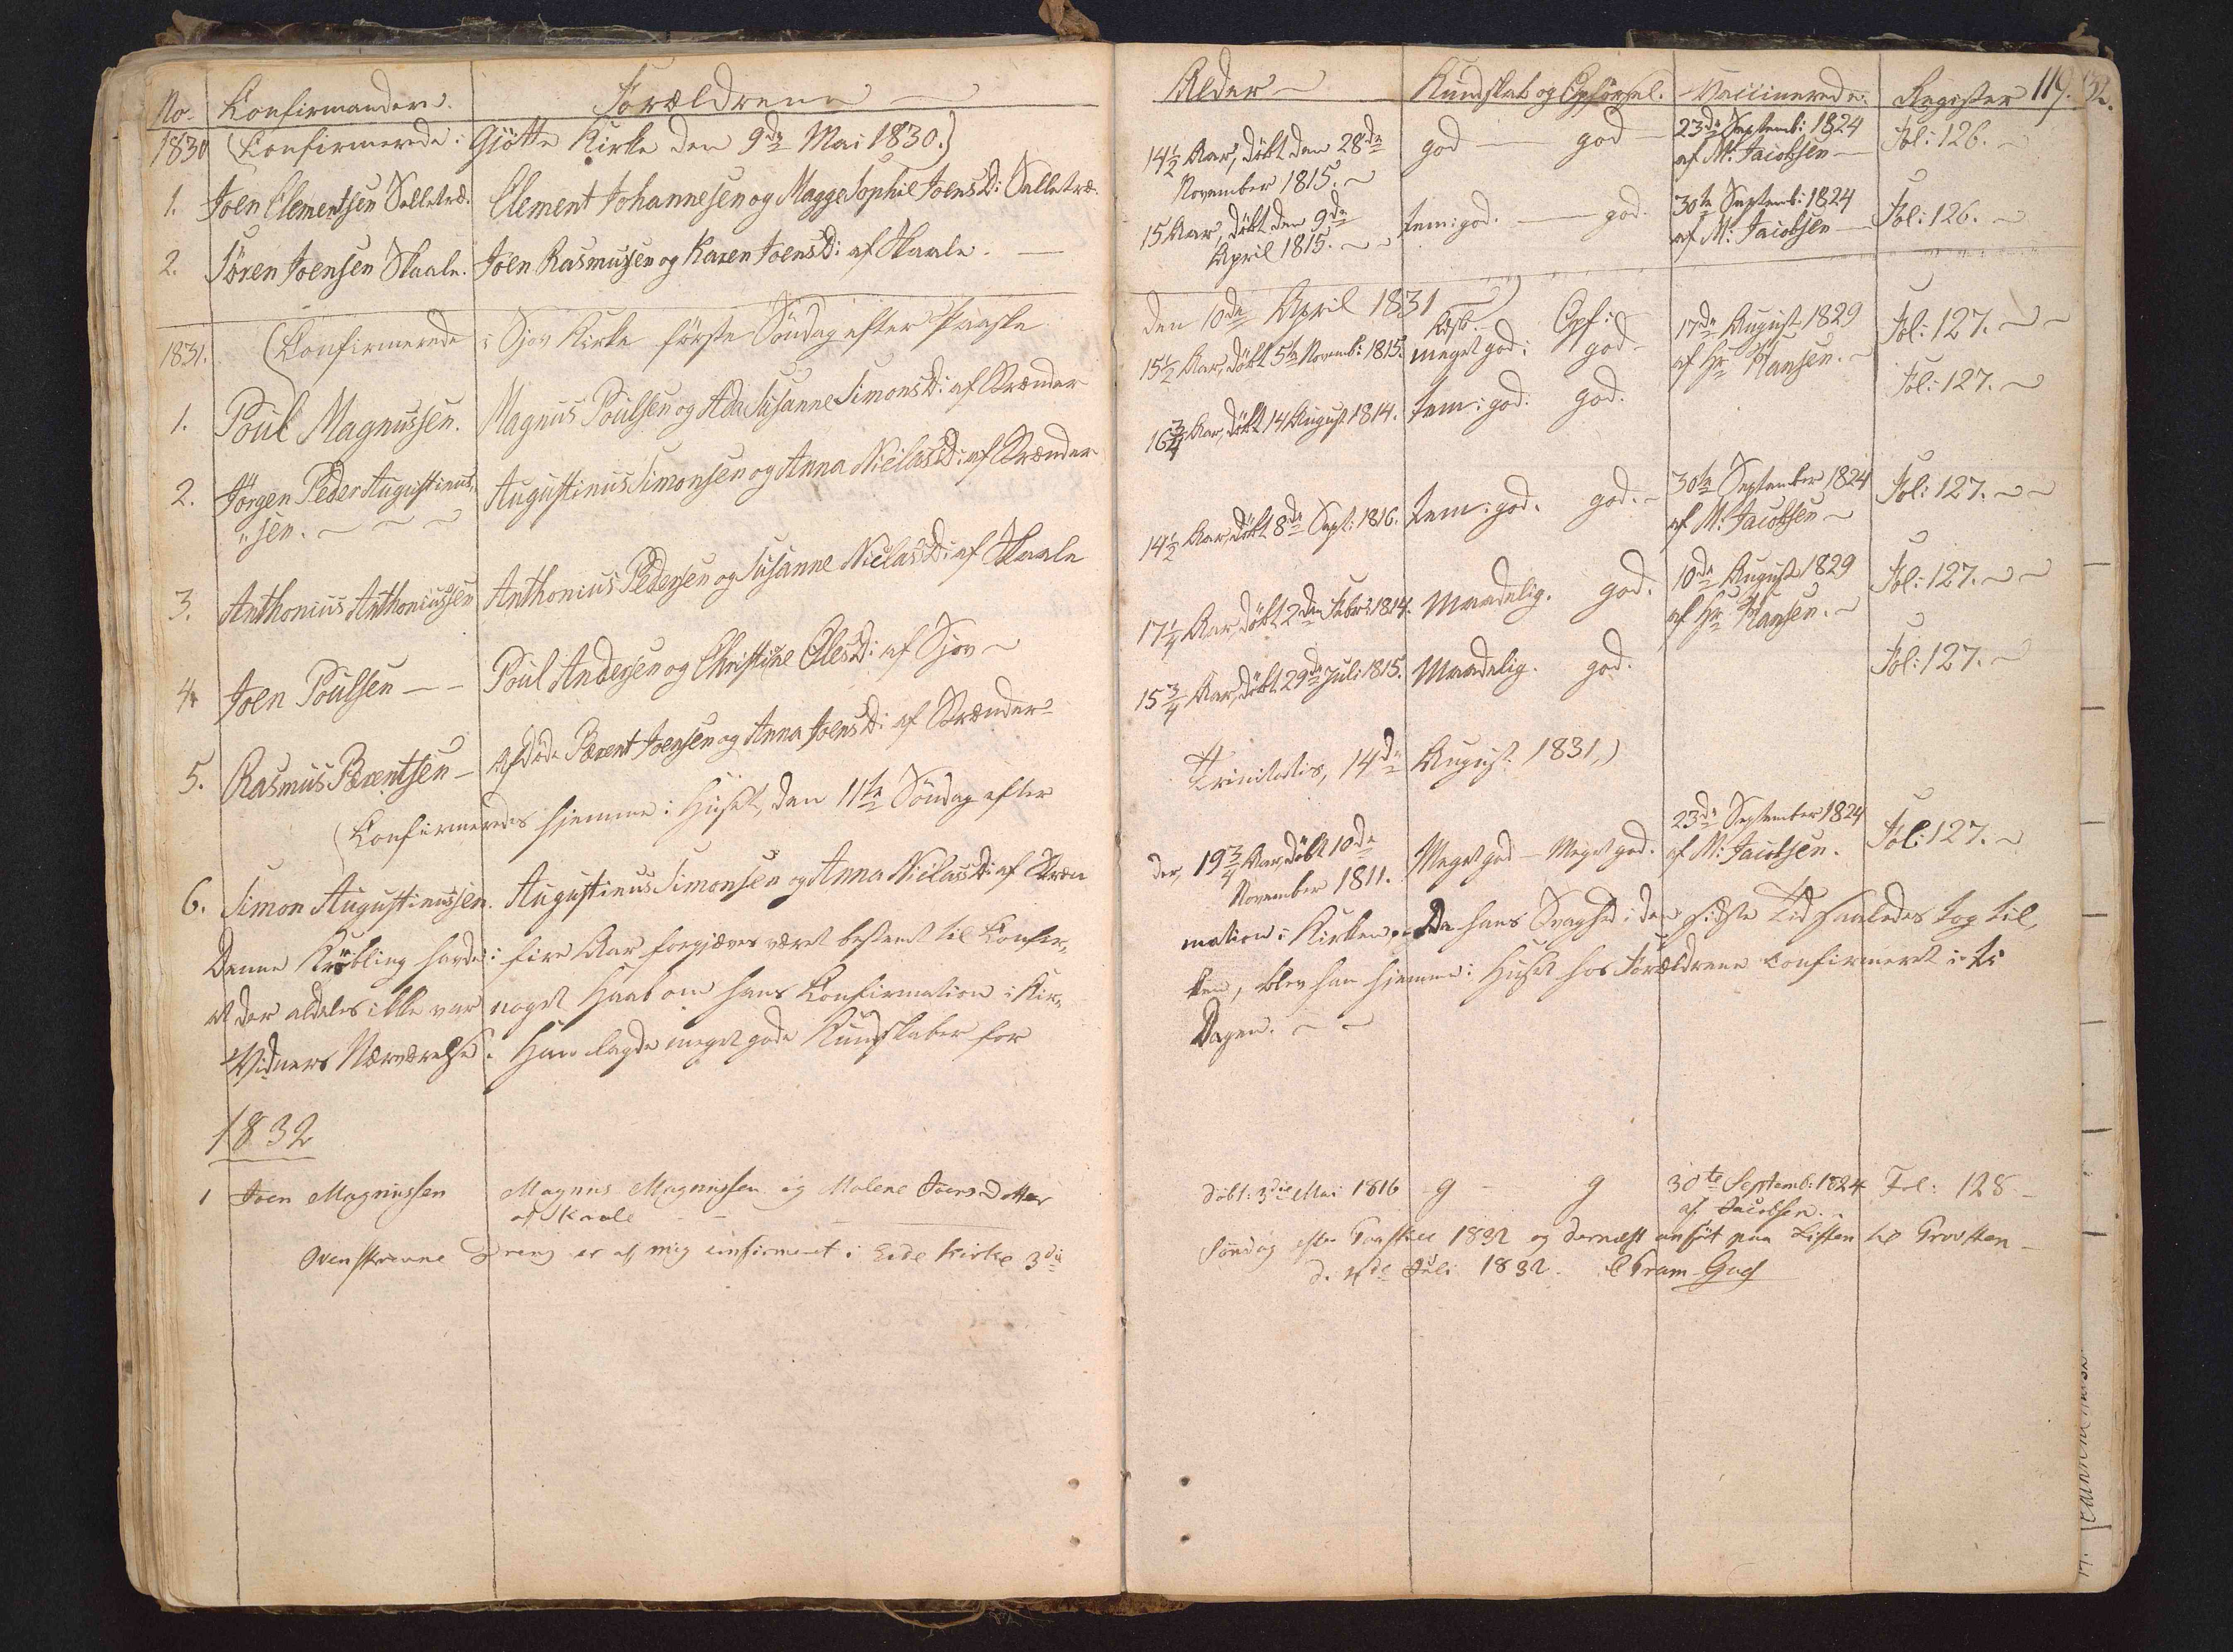 No. Confirmander. Forældrene
1830 (Confirmerede i Gjötte Kirke den 9de Mai 1830.)
1. Joen Clementsen Selletræ. Clement Johannesen og Magge Sophie JoensD: Selletræ.
2. Sören Joensen Skaale. Joen Rasmussen og Karen JoensD: af Skaale.
1831. (Confirmerede i Sjov Kirke förste Söndag efter Paaske
1. Poul Magnussen. Magnus Poulsen og Ada Susanne SimonsD: af Strænder
2. Jörgen Peder Augustinus- Augustinus Simonsen og Anna NiclasD: af Strænder
sen.
3. Anthonius Anthoniussen Anthonius Pedersen og Susanne NiclasD: af Skaale
4. Joen Poulsen Poul Andersen og Christine OlesD: af Sjov
5. Rasmus Berentsen Afdöde Berent Joensen og Anna JoensD: af Strænder
(Confirmeredes hjemme i Huset, den 11te Söndag efter
6. Simon Augustinussen. Augustinus Simonsen og Anna NiclasD: af Stræn
Denne Kröbling havde i fire Aar forgjæves været bestemt til Confir-
at der aldeles ikke var noget Haab om hans Confirmation i Kir-
Vidners Nærværelse. Han lagde meget gode Kundskaber for
1832
1 Joen Magnussen Magnus Magnussen og Malene Joensdatter
af Skaale
Ovenskrevne Dreng er af mig confirmeret i Eide Kirke 3die
Alder Kundskab og Opförsel. Vaccinerede. Register 119.
14½ Aar, döbt den 28de god god 23de Septemb: 1824 Fol: 126.
November 1815. af M. Jacobsen
15 Aar, döbt den 9de tem: god. god. 30te Septemb: 1824 Fol: 126.
April 1815. af M: Jacobsen
den 10de April 1831)
Kdsk. Opf:
15½ Aar, döbt 5te Novemb: 1815. meget god: god 17de August 1829 Fol: 127.
af Hr Hansen.
16¾ Aar, döbt 14 August 1814. tem: god. god. Fol: 127.
14½ Aar, döbt 8de Sept: 1816. tem: god. god. 30te September 1824 Fol: 127.
af M. Jacobsen
17¼ Aar, döbt 2den Febr: 1814. Maadelig. god. 10de August 1829 Fol: 127.
af Hr Hansen.
15¾ Aar, döbt 29de Juli 1815. Maadelig. god. Fol: 127.
Trinitatis, 14de August 1831,)
der, 19¾ Aar, döbt 10de Meget god Meget god. 23de September 1824 Fol: 127.
November 1811. af M: Jacobsen.
mation i Kirken, Da hans Svaghed i den sidste Tid saaledes tog til,
ken, blev han hjemme i Huset hos Forældrene confirmeret i to
Dagen.
döbt: 3die Mai 1816 g g 30te Septemb: 1824 Fol: 128
af Jacobsen.
Söndag efter Paaske 1832 og dernæst anfört paa Listen til Provsten
d. Juli 1832. C Gad